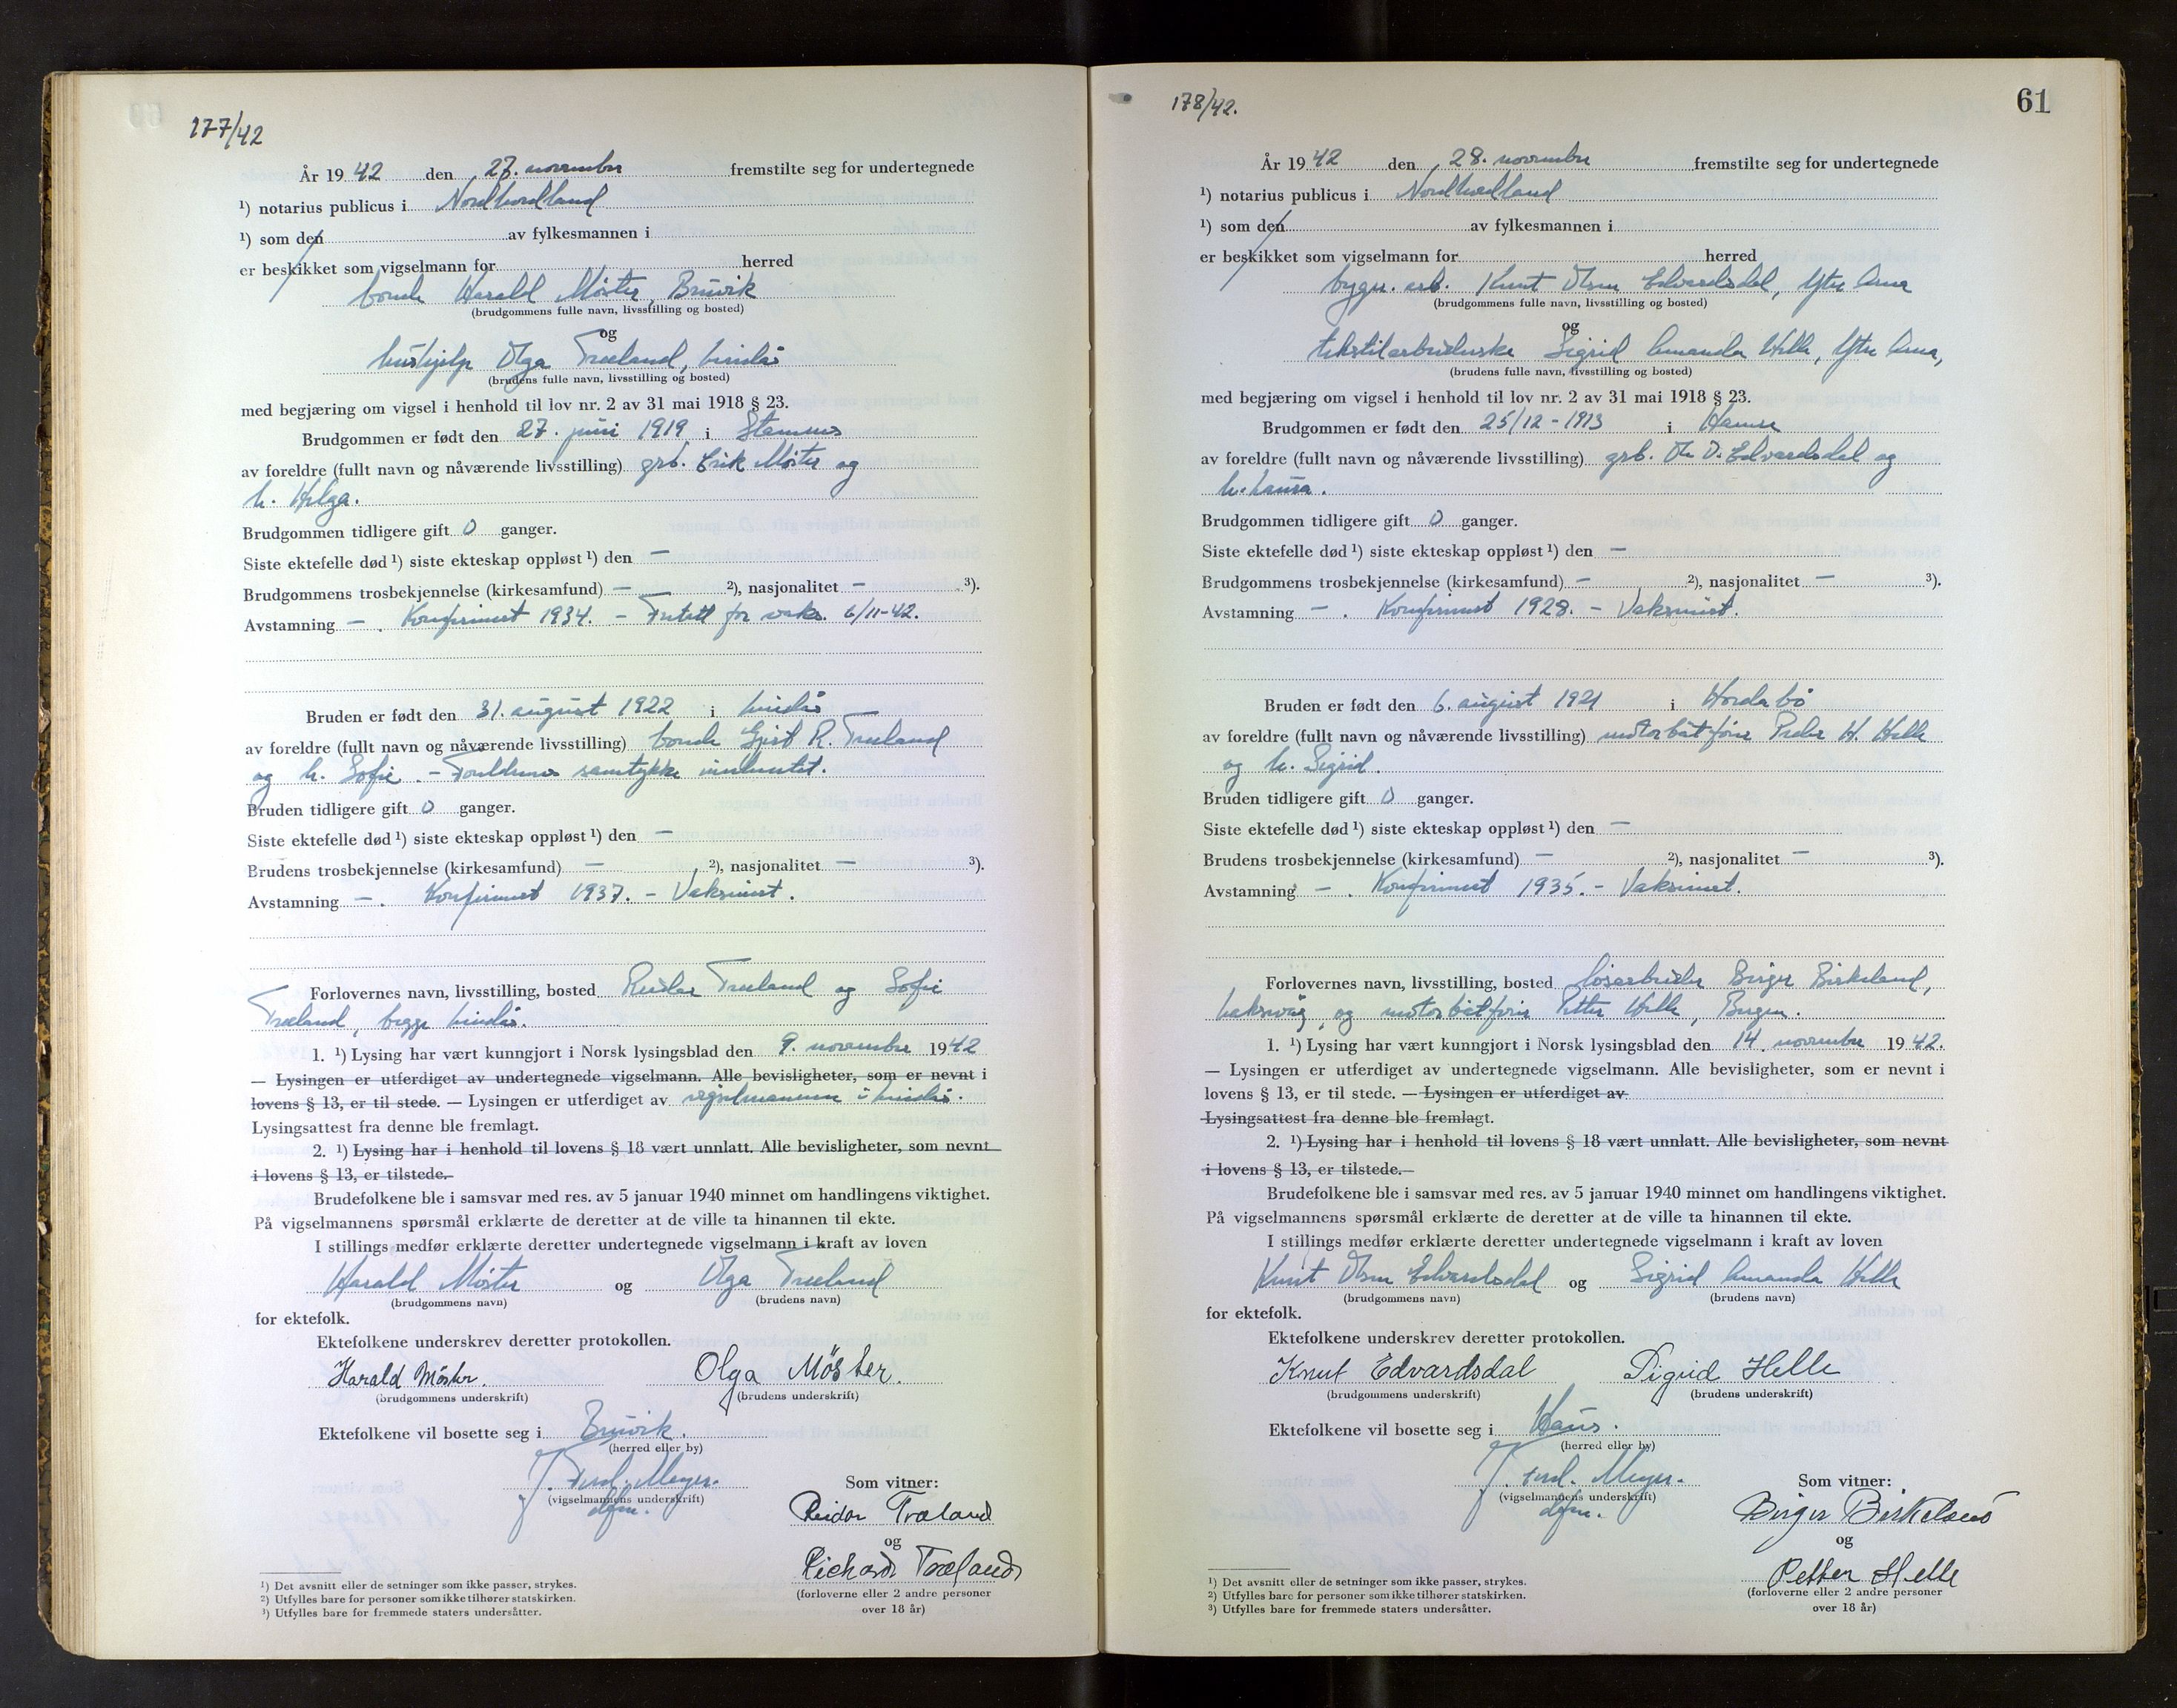 177/42
År 1942 den 27. november fremstilte seg for undertegnede
¹) notarius publicus i Nordhordland
¹) som den av fylkesmannen i
er beskikket som vigselmann for herred
bonde Harald Möster, Bruvik
(brudgommens fulle navn, livsstilling og bosted)
og
hushjelp Olga Træland, Lindås
(brudens fulle navn, livsstilling og bosted)
med begjæring om vigsel i henhold til lov nr. 2 av 31 mai 1918 § 23.
Brudgommen er født den 27. juni 1919 i Stamnes
av foreldre (fullt navn og nåværende livsstilling) grb. Erik Möster og
h. Helga.
Brudgommen tidligere gift 0 ganger.
Siste ektefelle død ¹) siste ekteskap oppløst ¹) den —
Brudgommens trosbekjennelse (kirkesamfund) — ²), nasjonalitet — ³).
Avstamning — . Konfirmert 1934. – Fritatt for vaks. 6/11-42.
Bruden er født den 31. august 1922 i Lindås
av foreldre (fullt navn og nåværende livsstilling) bonde Gjert R. Træland
og h. Sofie. – Foreldrenes samtykke innhentet.
Bruden tidligere gift 0 ganger.
Siste ektefelle død ¹) siste ekteskap oppløst ¹) den —
Brudens trosbekjennelse (kirkesamfund) — ²), nasjonalitet — ³).
Avstamning — . Konfirmert 1937. – Vaksinert.
Forlovernes navn, livsstilling, bosted Reidar Træland og Sofie
Træland, begge Lindås.
1. ¹) Lysing har vært kunngjort i Norsk lysingsblad den 9. november 1942
— Lysingen er utferdiget av undertegnede vigselmann. Alle bevisligheter, som er nevnt i
lovens § 13, er til stede. — Lysingen er utferdiget av vigselmannen i Lindås.
Lysingsattest fra denne ble fremlagt.
2. ¹) Lysing har i henhold til lovens § 18 vært unnlatt. Alle bevisligheter, som nevnt
i lovens § 13, er tilstede.
Brudefolkene ble i samsvar med res. av 5 januar 1940 minnet om handlingens viktighet.
På vigselmannens spørsmål erklærte de deretter at de ville ta hinannen til ekte.
I stillings medfør erklærte deretter undertegnede vigselmann i kraft av loven
Harald Möster og Olga Træland
(brudgommens navn) (brudens navn)
for ektefolk.
Ektefolkene underskrev deretter protokollen.
Harald Möster. Olga Möster.
(brudgommens underskrift) (brudens underskrift)
Ektefolkene vil bosette seg i Bruvik.
(herred eller by)
J. Ferd. Meyer.
(vigselmannens underskrift)
dfm.
Som vitner:
Reidar Træland
og
Richard Træland
(forloverne eller 2 andre personer
over 18 år)
¹) Det avsnitt eller de setninger som ikke passer, strykes.
²) Utfylles bare for personer som ikke tilhører statskirken.
³) Utfylles bare for fremmede staters undersåtter.
178/42.
61
År 1942 den 28. november fremstilte seg for undertegnede
¹) notarius publicus i Nordhordland
¹) som den av fylkesmannen i
er beskikket som vigselmann for herred
bygn. arb. Knut Olsen Edvardsdal, Ytre Arna
(brudgommens fulle navn, livsstilling og bosted)
og
tekstilarbeiderske Sigrid Amanda Helle, Ytre Arna,
(brudens fulle navn, livsstilling og bosted)
med begjæring om vigsel i henhold til lov nr. 2 av 31 mai 1918 § 23.
Brudgommen er født den 25/12 - 1913 i Hamre
av foreldre (fullt navn og nåværende livsstilling) grb. Ole O. Edvardsdal og
h. Laura.
Brudgommen tidligere gift 0 ganger.
Siste ektefelle død ¹) siste ekteskap oppløst ¹) den —
Brudgommens trosbekjennelse (kirkesamfund) — ²), nasjonalitet — ³).
Avstamning — . Konfirmert 1928. – Vaksinert.
Bruden er født den 6. august 1921 i Hordabö
av foreldre (fullt navn og nåværende livsstilling) motorbåtförer Peder H. Helle
og h. Sigrid.
Bruden tidligere gift 0 ganger.
Siste ektefelle død ¹) siste ekteskap oppløst ¹) den —
Brudens trosbekjennelse (kirkesamfund) — ²), nasjonalitet — ³).
Avstamning — . Konfirmert 1935. – Vaksinert.
Forlovernes navn, livsstilling, bosted lösarbeider Birger Birkeland,
Laksevåg, og motorbåtförer Petter Helle, Bergen.
1. ¹) Lysing har vært kunngjort i Norsk lysingsblad den 14. november 1942.
— Lysingen er utferdiget av undertegnede vigselmann. Alle bevisligheter, som er nevnt i
lovens § 13, er til stede. — Lysingen er utferdiget av
Lysingsattest fra denne ble fremlagt.
2. ¹) Lysing har i henhold til lovens § 18 vært unnlatt. Alle bevisligheter, som nevnt
i lovens § 13, er tilstede.
Brudefolkene ble i samsvar med res. av 5 januar 1940 minnet om handlingens viktighet.
På vigselmannens spørsmål erklærte de deretter at de ville ta hinannen til ekte.
I stillings medfør erklærte deretter undertegnede vigselmann i kraft av loven
Knut Olsen Edvardsdal og Sigrid Amanda Helle
(brudgommens navn) (brudens navn)
for ektefolk.
Ektefolkene underskrev deretter protokollen.
Knut Edvardsdal Sigrid Helle
(brudgommens underskrift) (brudens underskrift)
Ektefolkene vil bosette seg i Haus.
(herred eller by)
J. Ferd. Meyer.
(vigselmannens underskrift)
dfm.
Som vitner:
Birger Birkeland
og
Petter Helle
(forloverne eller 2 andre personer
over 18 år)
¹) Det avsnitt eller de setninger som ikke passer, strykes.
²) Utfylles bare for personer som ikke tilhører statskirken.
³) Utfylles bare for fremmede staters undersåtter.